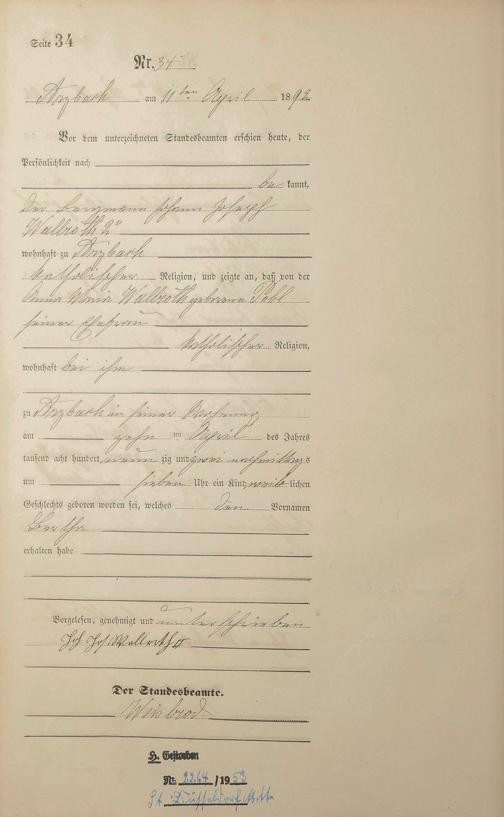 Seite 34
Nr. 34
Arzbach am 11ten April 1892
Vor dem unterzeichneten Standesbeamten erschien heute, der
Persönlichkeit nach
be kannt,
der Bergmann Johann Joseph
Wallroth 2r
wohnhaft zu Arzbach
katholischer Religion, und zeigte an, daß von der
Anna Maria Wallroth geborene
seiner Ehefrau
katholischer Religion,
wohnhaft bei ihm
zu Arzbach in seiner Wohnung
am zehn ten April des Jahres
tausend acht hundert neun zig und zwei nachmittags
um sieben Uhr ein Kind weib lichen
Geschlechts geboren worden sei, welches den Vornamen
Bertha
erhalten habe
Vorgelesen, genehmigt und unterschrieben
Joh Jos. Wallroth II
Der Standesbeamte.
Weisbrod
Gestorben
Nr. 2264/1953
St. Düsseldorf-Mitte